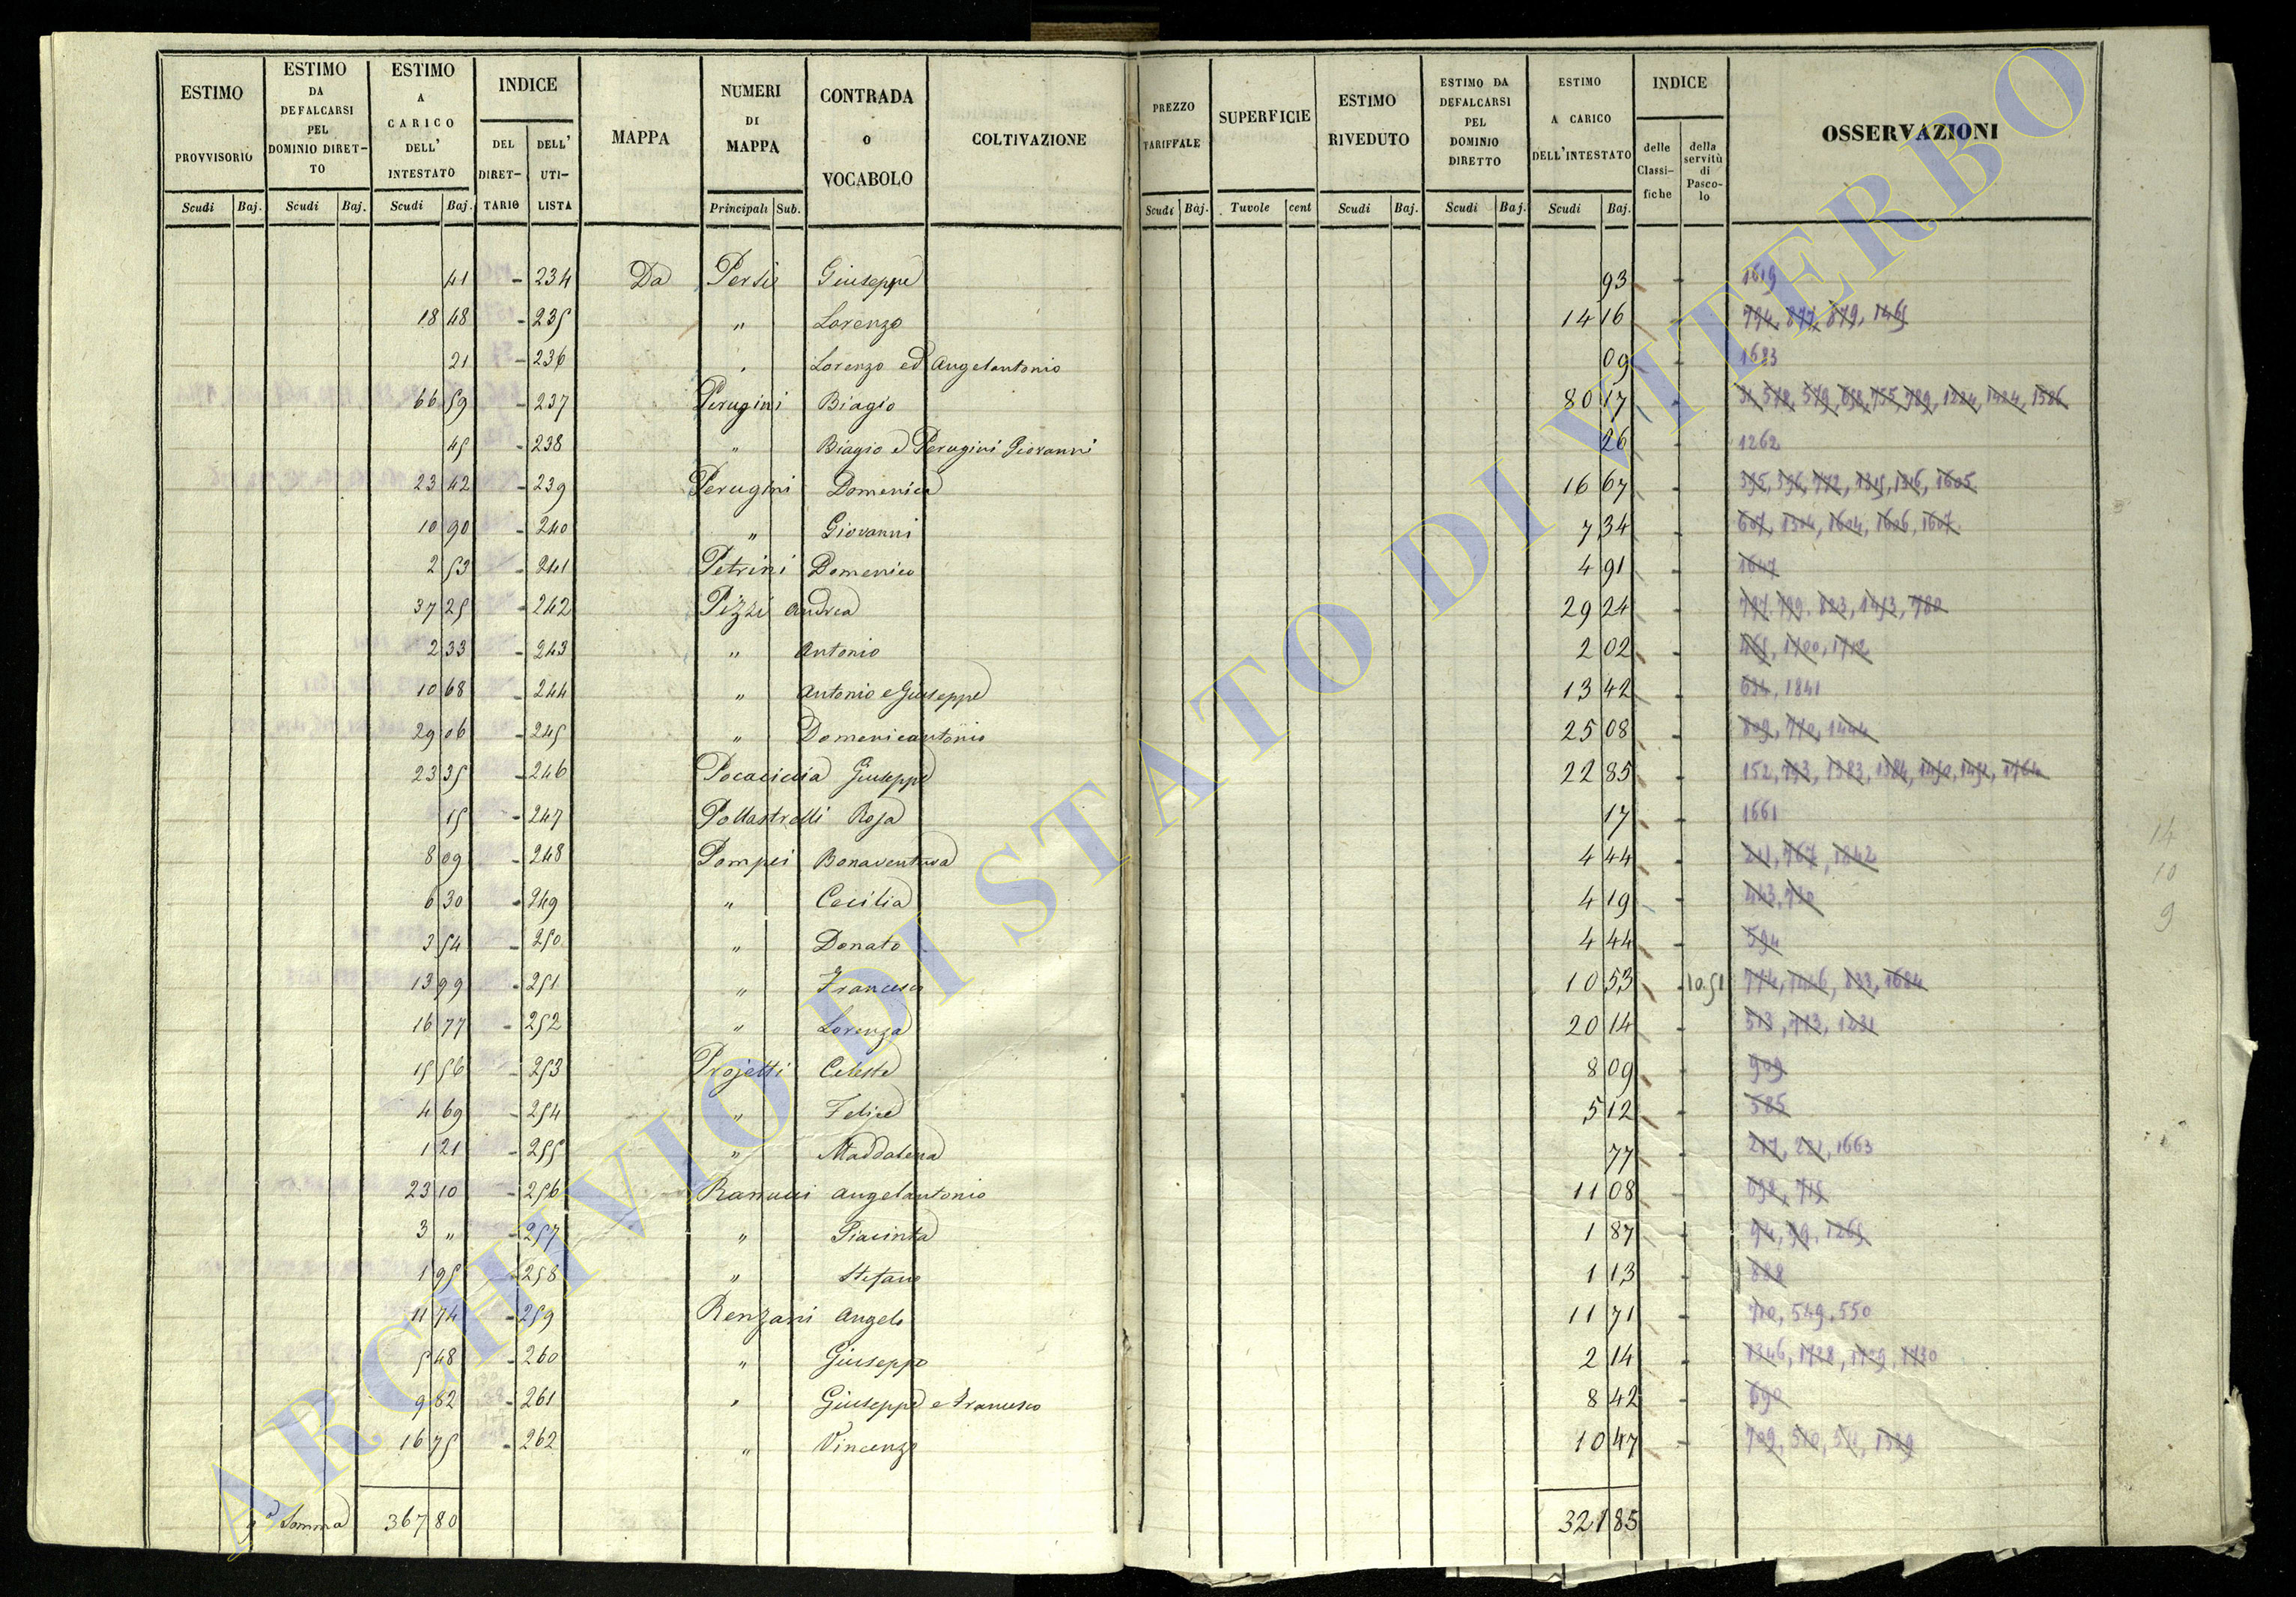 ESTIMO PROVVISORIO Scudi Baj.
ESTIMO DA DEFALCARSI PEL DOMINIO DIRET-TO Scudi Baj.
ESTIMO A CARICO DELL' INTESTATO Scudi Baj.
INDICE DEL DIRET-TARIO DELL' UTI-LISTA
MAPPA
NUMERI DI MAPPA Principali Sub.
CONTRADA o VOCABOLO
COLTIVAZIONE
PREZZO TARIFFALE Scudi Baj.
SUPERFICIE Tavole cent
ESTIMO RIVEDUTO Scudi Baj.
ESTIMO DA DEFALCARSI PEL DOMINIO DIRETTO Scudi Baj.
ESTIMO A CARICO DELL'INTESTATO Scudi Baj.
INDICE delle Classi-fiche della servitù di Pasco-lo
OSSERVAZIONI
41 - 234 Da Persie Giuseppe 93 - 1619
18 48 - 235 " Lorenzo 14 16 - 794, 877, 879, 1465
21 - 236 " Lorenzo ed Angelantonio 09 - 1683
66 59 - 237 Perugini Biagio 80 17 - 31, 578, 579, 698, 755, 789, 1224, 1424, 1586
45 - 238 " Biagio e Perugini Giovanni 26 - 1262
23 42 - 239 Perugini Domenica 16 67 - 395, 396, 772, 1315, 1316, 1605
10 90 - 240 " Giovanni 7 34 - 607, 1304, 1604, 1606, 1607
2 53 - 241 Petrini Domenico 4 91 - 1647
37 25 - 242 Pizzi Andrea 29 24 - 823, 1453, 780
2 33 - 243 " Antonio 2 02 - 1700, 1712
10 68 - 244 " Antonio e Giuseppe 13 42 - 634, 1841
29 06 - 245 " Domenicantonio 25 08 - 809, 770, 1444
23 35 - 246 Pocaciccia Giuseppe 22 85 - 152, 793, 1383, 1384, 1450, 1451, 1764
15 - 247 Pollastrelli Rosa 17 - 1661
8 09 - 248 Pompei Bonaventura 4 44 - 211, 767, 1842
6 30 - 249 " Cecilia 4 19 - 443, 720
3 54 - 250 " Donato 4 44 - 594
13 99 - 251 " Francesco 10 53 - 10.51 774, 833, 1684
16 77 - 252 " Lorenza 20 14 - 513, 713, 1231
15 56 - 253 Projetti Celeste 8 09 - 909
4 69 - 254 " Felice 5 12 - 585
1 21 - 255 " Maddalena 77 - 217, 221, 1663
23 10 - 256 Ranucci Angelantonio 11 08 - 698, 715
3 " - 257 " Giacinta 1 87 - 94, 99, 1265
1 95 - 258 " Stefano 1 13 - 888
11 74 - 259 Renzani Angelo 11 71 710, 549, 550
5 48 - 260 " Giuseppe 2 14 - 1346, 1728, 1729, 1730
9 82 - 261 " Giuseppe e Francesco 8 42 - 690
16 75 - 262 " Vincenzo 10 47 - 709, 510, 1389
9ª Somma 367 80 321 85
14
10
9
ARCHIVIO DI STATO DI VITERBO